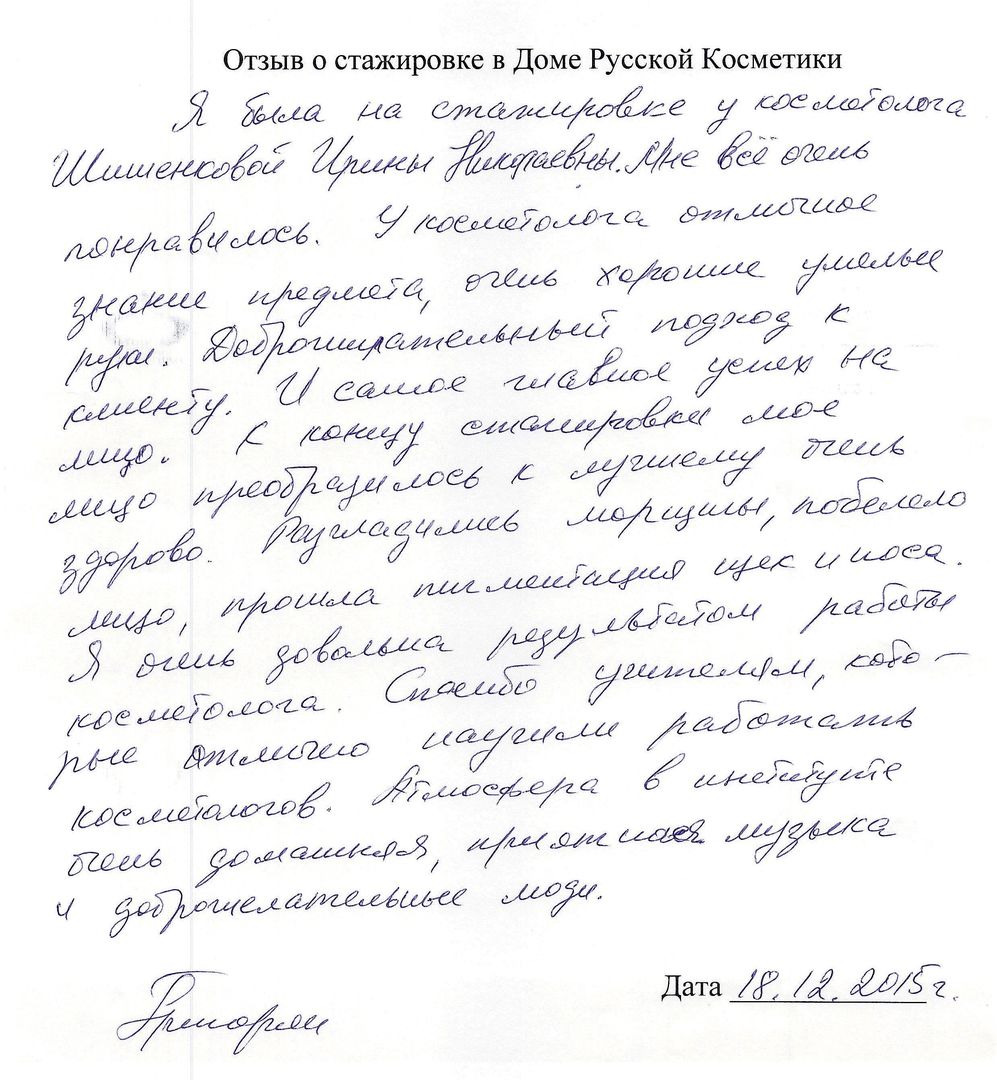 Отзыв о стажировке в Доме Русской Косметики
Я была на стажировке у косметолога
Шишенковой Ирины Николаевны. Мне всё очень
понравилось. У косметолога отличное
знание предмета, очень хорошие умелые
руки. Доброжелательный подход к
клиенту. И самое главное успех на
лицо. К концу стажировки мое
лицо преобразилось к лучшему очень
здорово. Разгладились морщины, побелело
лицо, прошла пигментация щек и носа.
Я очень довольна результатом работы
косметолога. Спасибо учителям, кото-
рые отлично научили работать
косметологов. Атмосфера в институте
очень домашняя, приятная музыка
и доброжелательные люди.
Дата 18.12.2015г.